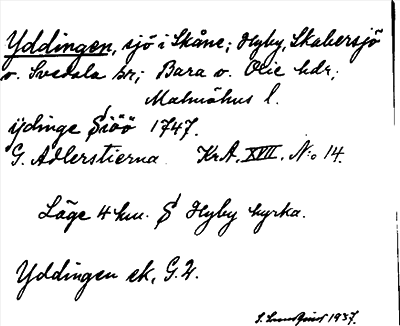 Yddingen, sjö i Skåne; Hyby, Skabersjö
o. Svedala sn; Bara o. Oxie hdr;
Malmöhus l.
ÿdinge Siöö 1747.
G. Adlerstierna KrA, XVIII, No 14.
Läge 4 km. S Hyby kyrka.
Yddingen ek, G. 2.
S. Lundquist 1937.